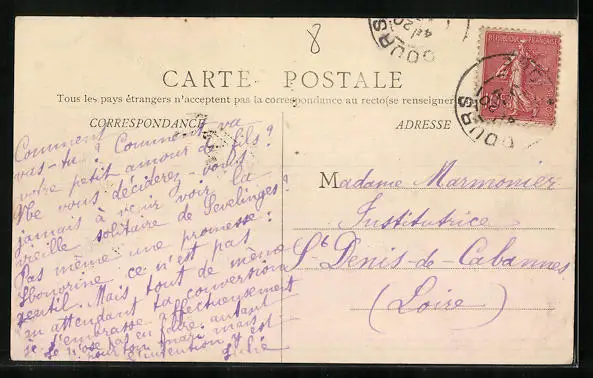 8
CARTE POSTALE
Tous les pays étrangers n'acceptent pas la correspondance au recto (se renseigner
CORRESPONDANCE
ADRESSE
Comment
vas-tu ? Comment va
votre petit amour de fils ?
Ne vous déciderez-vous
jamais à venir voir la
vieille solitaire de Sevelinges ?
Pas même une promesse !
ce n'est pas
gentil. Mais tout de même
en attendant ta conversion
je t'embrasse affectueusement
Je n'ose pas en faire autant
pour ton mari mais
l'intention y est
Madame Marmonier
Institutrice
St Denis-de-Cabannes
(Loire)
REPUBLIQUE FRANÇAISE
COURS
COURS